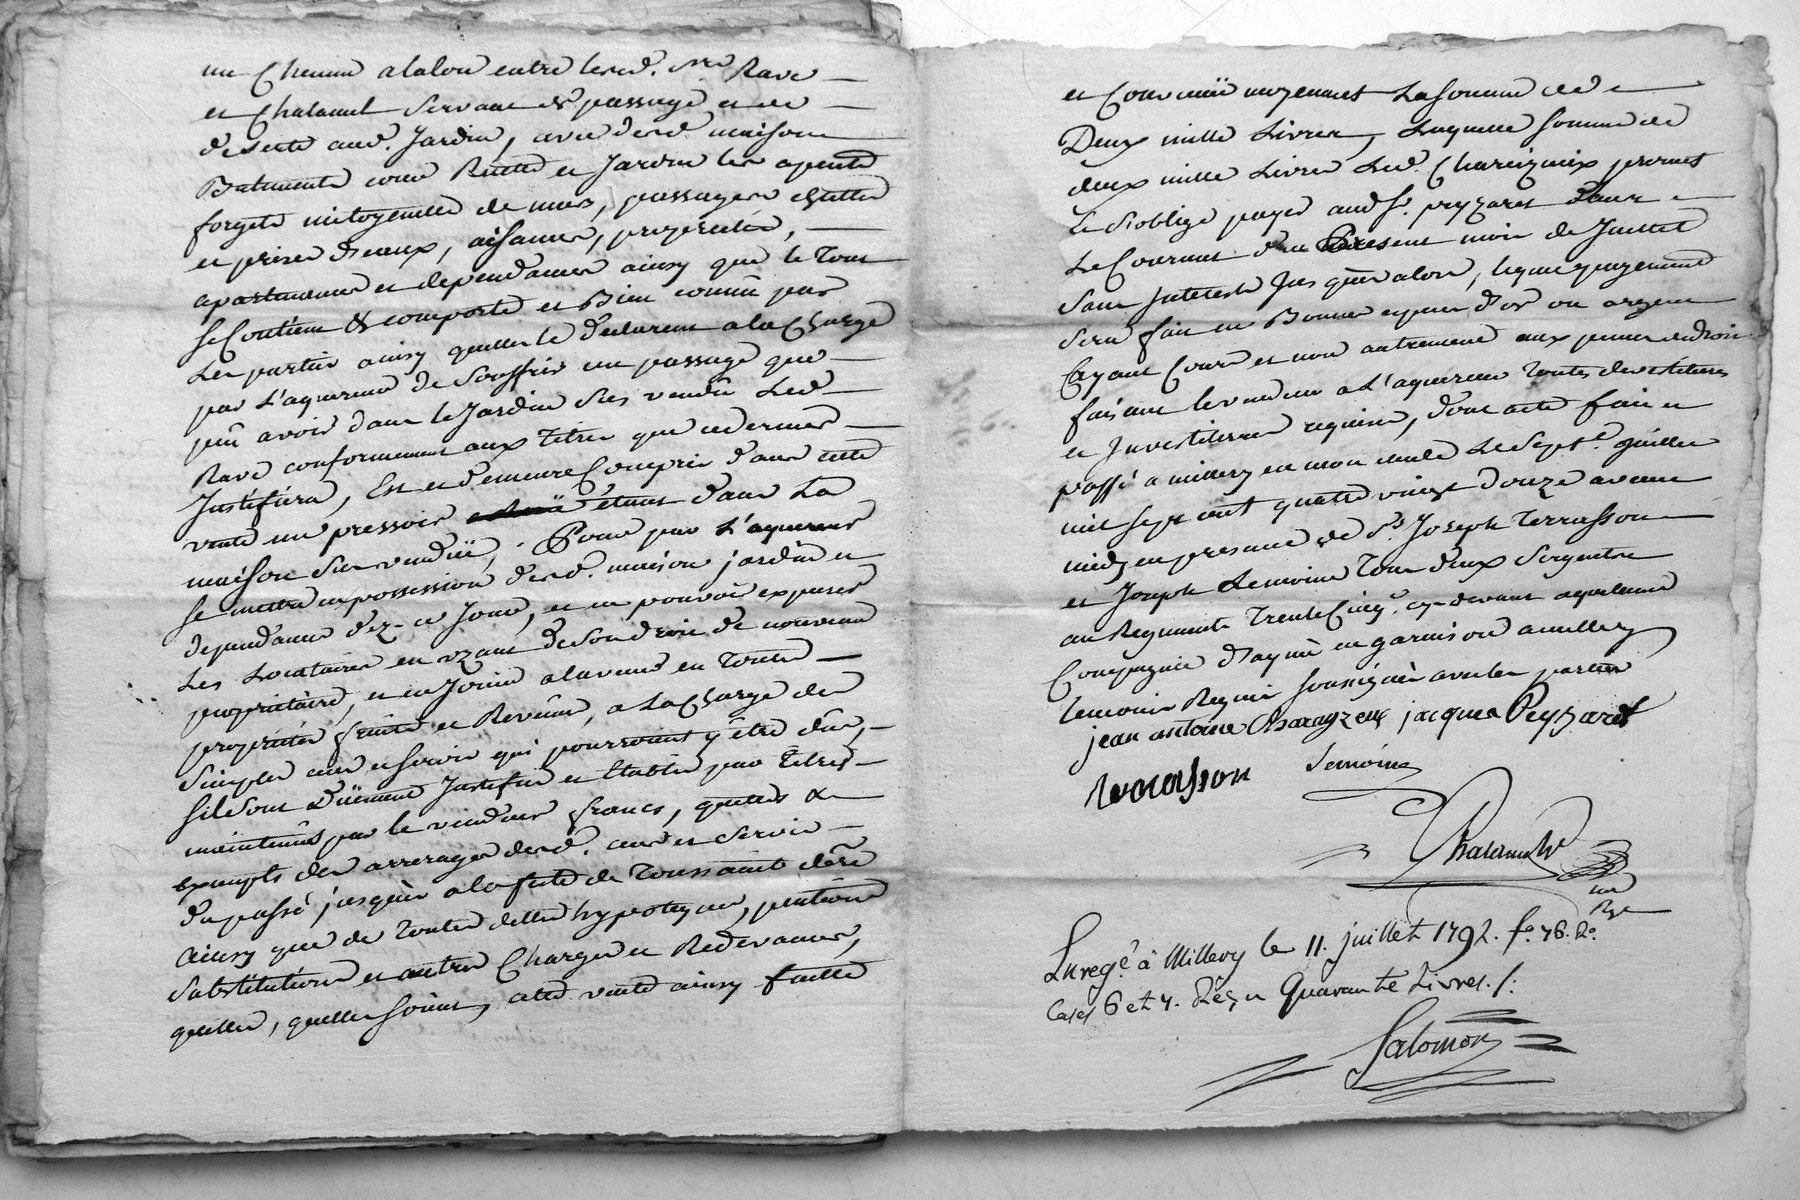 un Chemin a talon entre lesd. Srs Ravé
et Chalamel Servant de passage et de
deserte aud. Jardin, avec desd. maison
Batiments cour Ruette et Jardin les apents
forgets mitoyennetés de murs, passages chuttes
et prises d'eaux, aisances, proprietés,
apartenances et dependances ainsy que le tout
se Contient & comporte et Bien connu par
Les parties ainsy quelles le declarent a la Charge
par L'aquereur de Souffrir un passage que
peu avoir dans le Jardin Sus vendû Led.
Ravé conformement aux Titres que ce dernier
Justifiera, Est et demeure Compris dans cette
vente un pressoir étant dans La
maison Sus venduë, Pour par L'aquereur
se mettre en possession desd. maison jardin et
dependances dez ce Jour, et en pouvoir expulser
Les Locataires en uzant de son droit de nouveau
propriètaire, et en Jouir a l'avenir en toutte
proprietés fruits et Revenus, a La Charge des
Simples cens et servis qui pourroient y être dûs,
s'ils sont Düement Justifiés et Etablis par Titres
maintenus par le vendeur francs, quittes &
exempts des arrerages desd. cens et Servis
du passé jusques a la fette de Toussaint derè
ainsy que de toutes dettes hypoteques, pentions
Substitutions et autres Charges et Redevances,
quelles, quelles soient, cette vente ainsy faitte
et Convenuë moyennant La somme de
Deux mille Livres, Laquelle somme de
deux mille Livres Led. Chareizieux promet
Et s'oblige payer aud. Sr. peyzaret dans
Le Courant du Present mois de Juillet
Sans Interests Jusques alors, lequel payement
Sera fait en Bonnes especes d'or ou argent
Cayant Cours et non autrement aux peines de droit
faisant le vendeur a L'aquereur toutes devestitures
et Investitures requises, dont acte fait et
passé a millery en mon etude Le Sept.e Juillet
mil sept cent quatre vingt douze avant
midy en presence de Sr. Joseph Terrasson
et Joseph Lemoine tous deux Sergents
au Regiment Trente Cinq.e cy-devant aquitaine
Compagnie d'ayme en garnison a millery
temoins Requis soussignés avec les parties
jean antoine Charayzeux jacques Peyzaret
terrasson Lemoine
Chalamel
Enreg.é à Millery le 11. juillet 1792. fo. 76. Ro.
Cases 6 et 7. Reçu Quarante Livres./.
Salomon